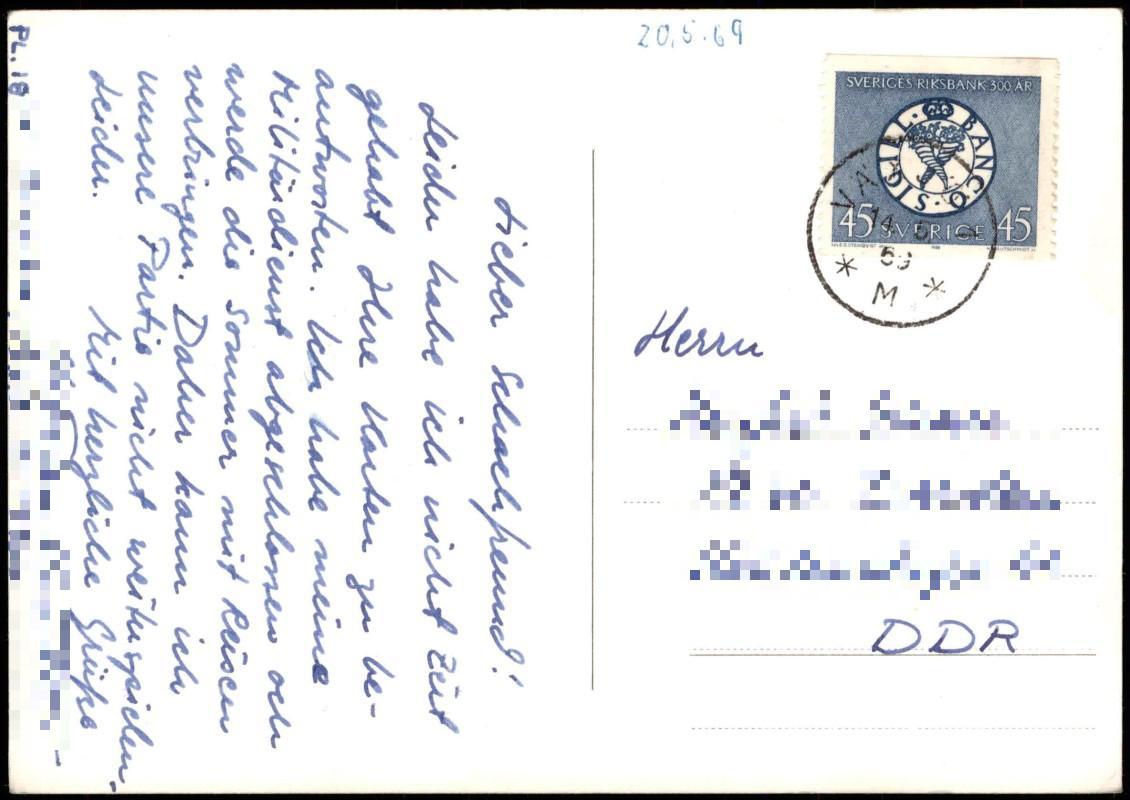 20.5.69
SVERIGES RIKSBANK 300 ÅR
SIGIL. BANCO.
45 SVERIGE 45
14
69
M
Lieber Schachfreund!
Leider habe ich nicht Zeit
gehabt Ihre Karten zu be-
antworten. Ich habe meine
Militärdienst abgeschlossen och
werde die Sommer mit Reisen
verbringen. Daher kann ich
unsere Partie nicht weiterspielen.
Leider.
Mit herzliche Grüße
PL. 18
Herrn
DDR